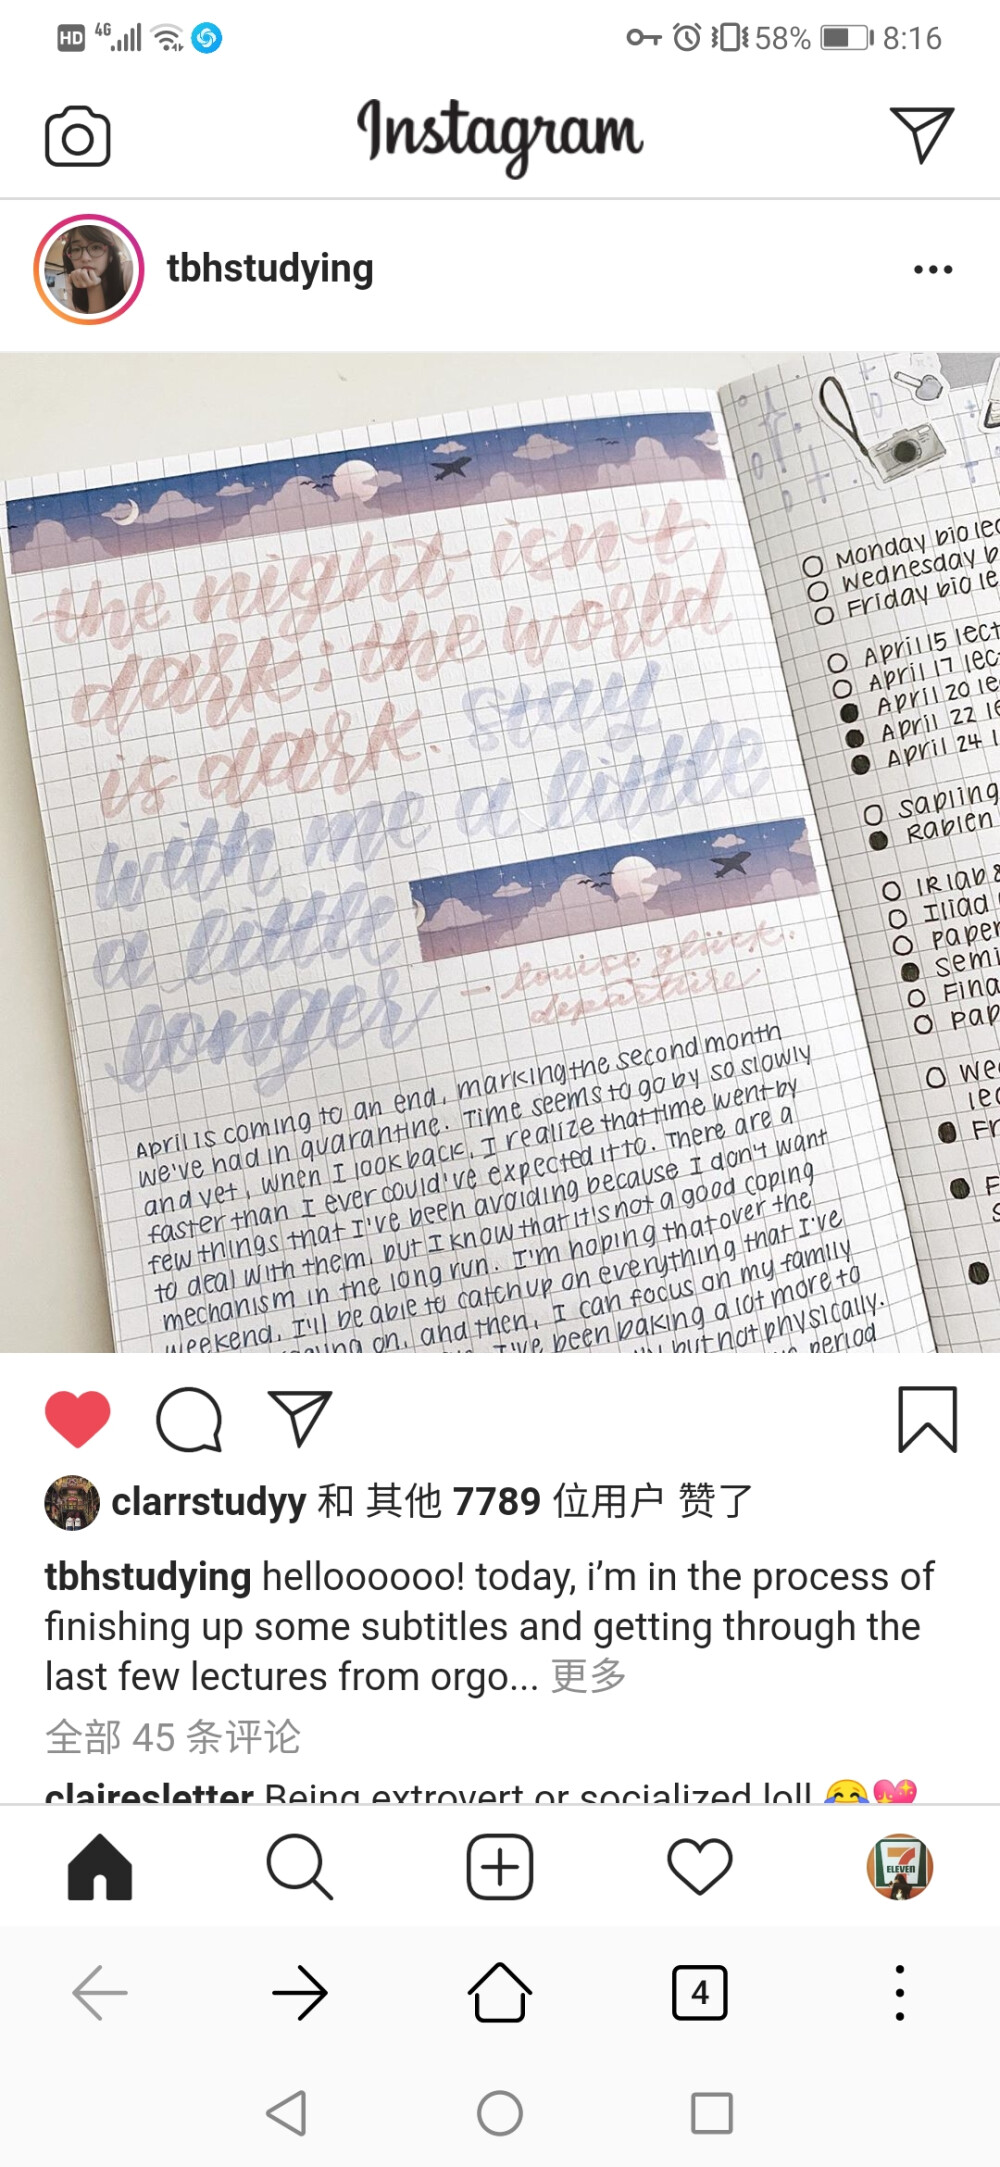 HD 4G 58% 8:16
Instagram
tbhstudying
the night isn't
dark; the world
is dark. stay
with me a little
a little
longer
— louise glück,
departure
April is coming to an end, marking the second month
we've had in quarantine. Time seems to go by so slowly
and yet, when I look back, I realize that time went by
faster than I ever could've expected it to. There are a
few things that I've been avoiding because I don't want
to deal with them, but I know that it's not a good coping
mechanism in the long run. I'm hoping that over the
weekend, I'll be able to catch up on everything that I've
on, and then, I can focus on my family
I've been baking a lot more to
but not physically.
period
Monday bio lec
Wednesday b
Friday bio le
April 15 lect
April 17 lec
April 20 le
April 22 le
April 24 l
sapling
Rablen
IR lab &
Iliad
paper
semi
Fina
pap
we
lec
Fr
F
s
clarrstudyy 和 其他 7789 位用户 赞了
tbhstudying helloooooo! today, i'm in the process of
finishing up some subtitles and getting through the
last few lectures from orgo... 更多
全部 45 条评论
clairesletter Being extrovert or socialized loll 😂💖
7 ELEVEN
4